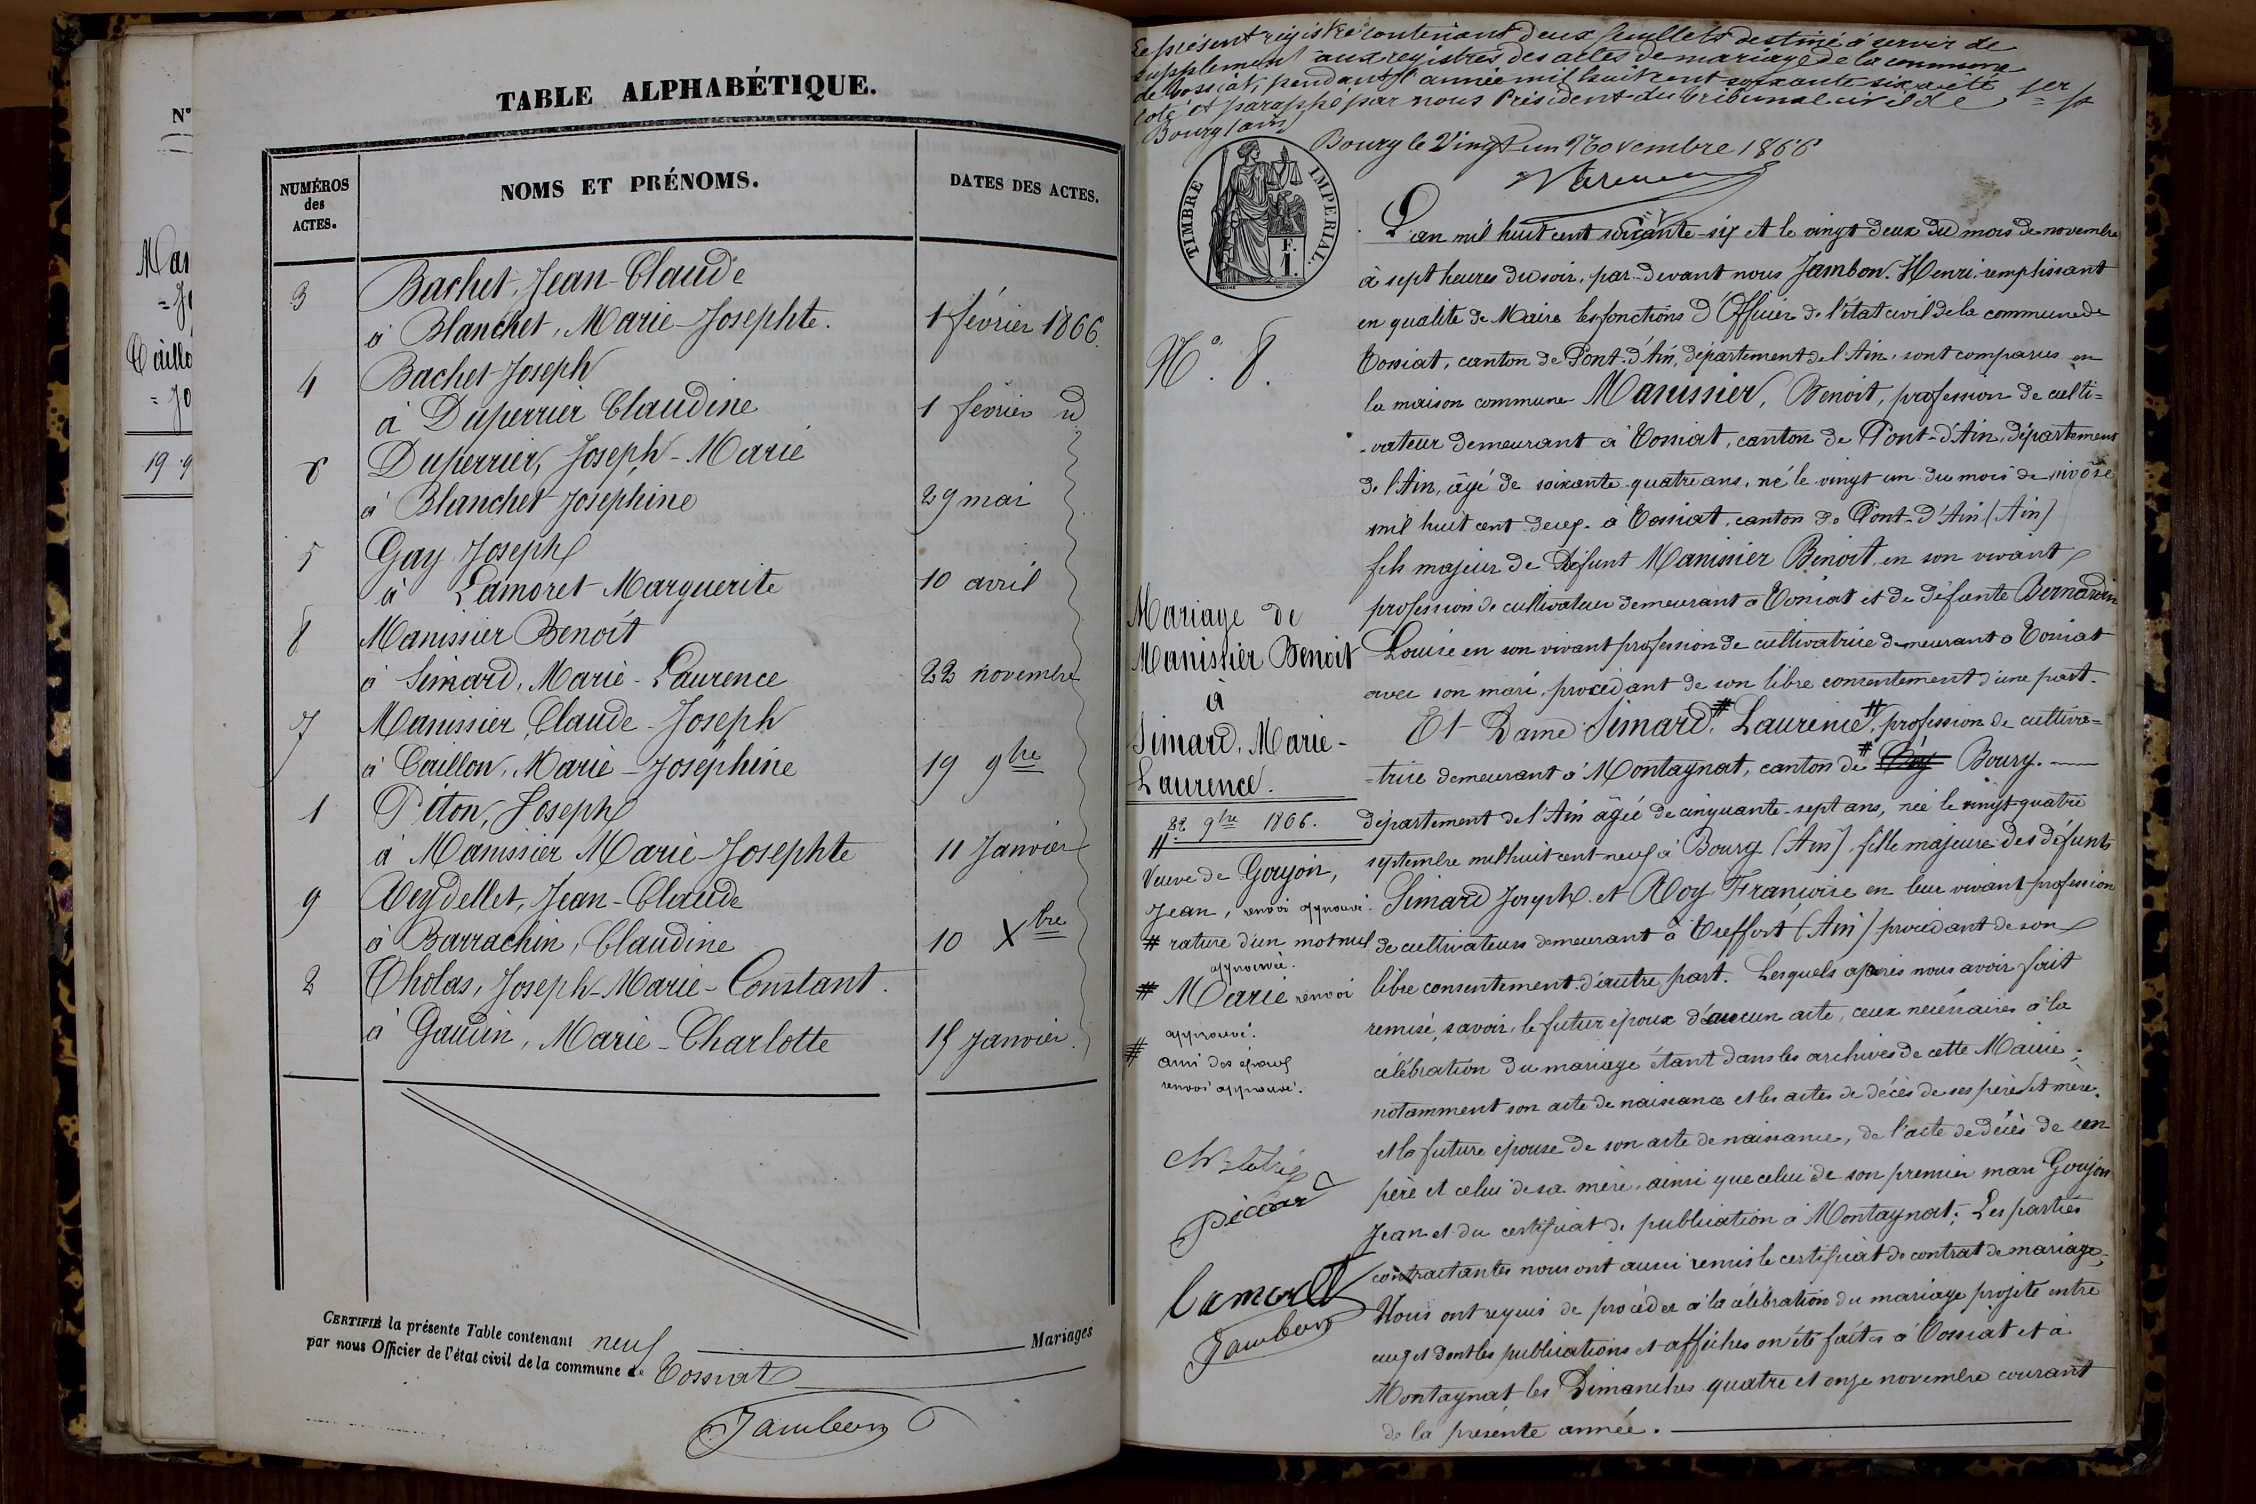 N°
Man
= Jo
Taillo
= Jo
19 9
TABLE ALPHABÉTIQUE.
NUMÉROS des ACTES.
NOMS ET PRÉNOMS.
DATES DES ACTES.
3 Bachet, Jean-Claude
à Blanchet, Marie-Josephte. 1 février 1866.
4 Bachet Joseph
à Duperrier Claudine 1 février d
6 Duperrier, Joseph-Marie
à Blanchet Joséphine 29 mai
5 Gay Joseph
à Lamoret Marguerite 10 avril
8 Manissier Benoit
à Simard, Marie-Laurence 22 novembre
7 Manissier, Claude-Joseph
à Taillon, Marie-Joséphine 19 9bre
1 Piton, Joseph
à Manissier Marie-Josephte 11 Janvier
9 Veydellet, Jean-Claude
à Barrachin, Claudine 10 Xbre
2 Tholas, Joseph-Marie-Constant.
à Gauin, Marie-Charlotte 15 Janvier.
CERTIFIÉ la présente Table contenant neuf Mariages
par nous Officier de l'état civil de la commune de Tossiat
Jambon
Le présent registre contenant deux feuillets destiné à servir de
supplément aux registres des actes de mariage de la commune
de Tossiat, pendant l'année mil huit cent soixante-six a été
coté et paraphé par nous Président du tribunal civil de
Bourg (ain)
1er
Bourg le Vingt-un Novembre 1866
TIMBRE IMPERIAL.
F.
1.
N°. 8.
L'an mil huit cent soixante-six et le vingt deux du mois de novembre
à sept heures du soir, par-devant nous Jambon. Henri remplissant
en qualité de Maire les fonctions d'Officier de l'état civil de la commune de
Tossiat, canton de Pont-d'Ain, département de l'Ain, sont comparus en
la maison commune Manissier, Benoit, profession de culti=
-vateur demeurant à Tossiat, canton de Pont-d'Ain, département
de l'Ain, âgé de soixante quatre ans, né le vingt un du mois de nivôse
mil huit cent deux à Tossiat, canton de Pont-d'Ain (Ain)
fils majeur de défunt Manissier Benoit en son vivant
profession de cultivateur demeurant à Tossiat et de défunte Bernardin
Louise en son vivant profession de cultivatrice demeurant à Tossiat
avec son mari, procédant de son libre consentement d'une part.
Et Dame Simard,# Laurence#, profession de cultiva=
=trice demeurant à Montagnat, canton de # Bourg.
département de l'Ain âgée de cinquante-sept ans, née le vingt quatre
septembre mil huit cent neuf à Bourg (Ain), fille majeure des défunts
Simard Joseph et Roy Françoise en leur vivant profession
de cultivateurs demeurant à Treffort (Ain) procédant de son
libre consentement d'autre part. Lesquels après nous avoir fait
remise, savoir, le futur époux d'aucun acte, ceux nécessaires à la
célébration du mariage étant dans les archives de cette Mairie;
notamment son acte de naissance et les actes de décès de ses père et mère.
et la future épouse de son acte de naissance, de l'acte de décès de son
père et celui de sa mère ainsi que celui de son premier mari Goujon
Jean et du certificat de publication à Montagnat; Les parties
contractantes nous ont aussi remis le certificat de contrat de mariage;
Nous ont requis de procéder à la célébration du mariage projeté entre
eux et dont les publications et affiches on été faites à Tossiat et à
Montagnat les Dimanches quatre et onze novembre courant
de la présente année.
Mariage de
Manissier Benoit
à
Simard, Marie-
Laurence.
22 9bre 1866.
#
Veuve de Goujon,
Jean, renvoi approuvé.
# rature d'un mot nul
approuvée.
# Marie renvoi
approuvé.
#
ami des époux
renvoi approuvé.
Piccard
Lamorett
Jambon